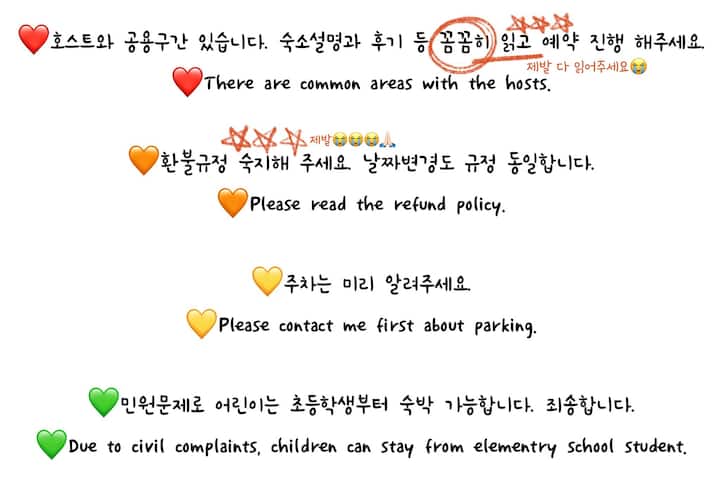 ❤️호스트와 공용구간 있습니다. 숙소설명과 후기 등 꼼꼼히 읽고 예약 진행 해주세요
제발 다 읽어주세요😭
❤️There are common areas with the hosts.
제발😭😭😭🙏🏻
🧡환불규정 숙지해 주세요. 날짜변경도 규정 동일합니다.
🧡Please read the refund policy.
💛주차는 미리 알려주세요
💛Please contact me first about parking.
💚민원문제로 어린이는 초등학생부터 숙박 가능합니다. 죄송합니다.
💚Due to civil complaints, children can stay from elementry school student.